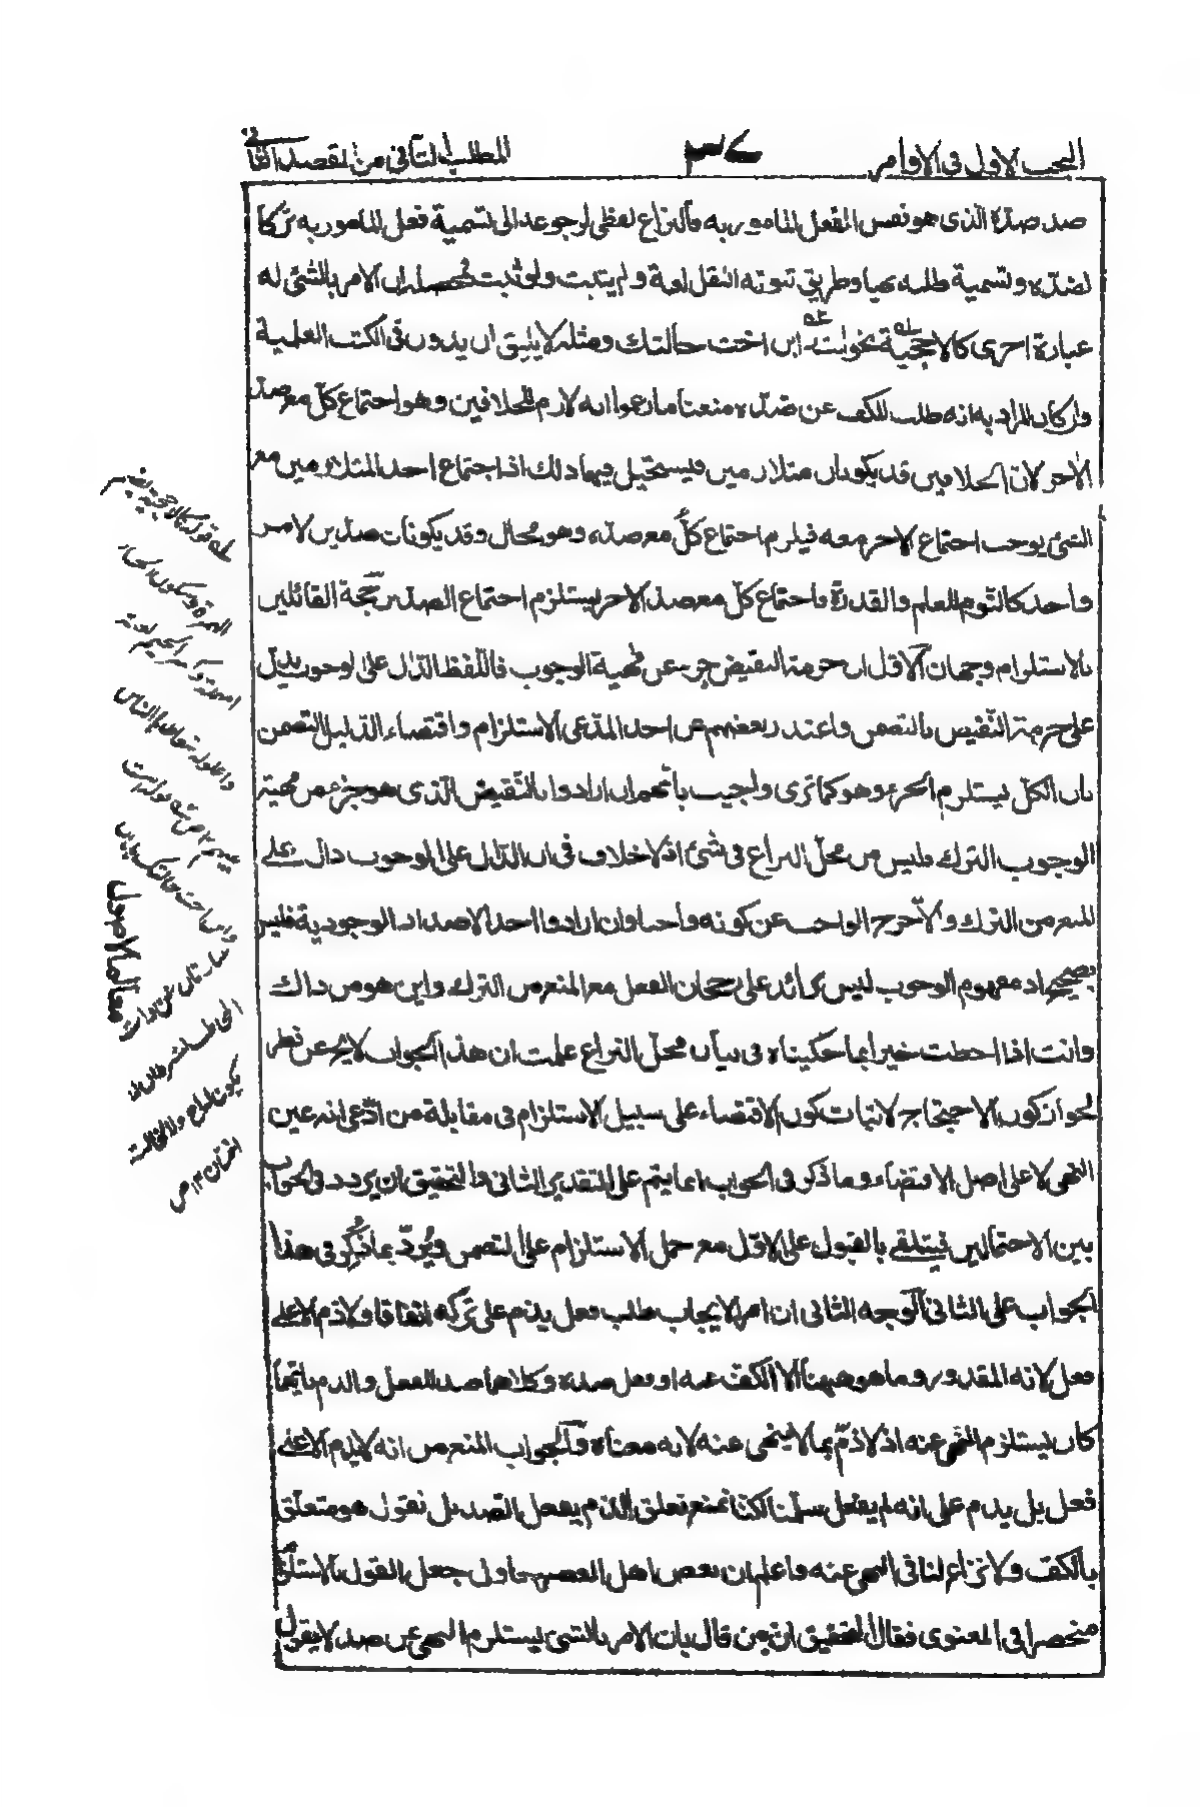 البحث الاول فى الاوامر
٣٧
المطلب الثانى من المقصد الثانى
ضد ضدّه الذى هو نفس الفعل المامور به فالنزاع لفظى لرجوعه الى تسمية فعل المامور به تركا
لضدّه وتسمية طلبه نهيا وطريق ثبوته النقل لغة ولم يثبت ولو ثبت فمحصله ان الامر بالشئ له
عبارة اخرى كالاحجية نحو انت ابن اخت خالتك ومثله لا يليق ان يدون فى الكتب العلمية
وان كان المراد به انه طلب للكف عن ضدّه منعنا ما زعموا انه لازم للخلافين وهو اجتماع كلّ مع ضد
الآخر لان الخلافين قد يكونان متلازمين فيستحيل فيهما ذلك اذ اجتماع احد المتلازمين مع
الشئ يوجب اجتماع الاخر معه فيلزم اجتماع كلّ مع ضدّه وهو محال وقد يكونان ضدّين لامر
واحد كالنّوم للعلم والقدرة فاجتماع كلّ مع ضد الاخر يستلزم اجتماع الضدّين حجّة القائلين
بالاستلزام وجهان الاوّل ان حرمة النقيض جزء من مهية الوجوب فاللّفظ الدّال على الوجوب يدلّ
على حرمة النّقيض بالتضمن واعتذر بعضهم عن اخذ المدّعى الاستلزام واقتضاء الدّليل التضمن
بان الكلّ يستلزم الجزء وهو كما ترى واجيب بانّهم ان ارادوا بالنّقيض الّذى هو جزء من مهية
الوجوب الترك فليس من محلّ النزاع فى شئ اذ لا خلاف فى ان الدّال على الوجوب دال على
المنع من الترك والاّ خرج الواجب عن كونه واجبا وان ارادوا احد الاضداد الوجودية فليس
بصحيح اذ مفهوم الوجوب ليس بزائد على رجحان الفعل مع المنع من الترك واين هو من ذاك
وانت اذا احطت خبرا بما حكيناه فى بيان محلّ النزاع علمت ان هذا الجواب لا يخ عن نظر
لجواز كون الاحتجاج لاثبات كون الاقتضاء على سبيل الاستلزام فى مقابلة من ادّعى انه عين
النهى لا على اصل الاقتضاء وما ذكر فى الجواب انما يتم على التقدير الثانى والتحقيق ان يردد فى الجواب
بين الاحتمالين فيتلقى بالقبول على الاوّل مع حمل الاستلزام على التضمن ويردّ بما ذكر فى هذا
الجواب على الثانى الوجه الثانى ان امر الايجاب طلب فعل يذم على تركه اتفاقا ولا ذم الا على
فعل لانه المقدور وما هو ههنا الا الكف عنه او فعل ضده وكلاهما ضد للفعل والذم بايّهما
كان يستلزم النهى عنه اذ لا ذمّ بما لا ينهى عنه لانه معناه والجواب المنع من انه لا يذم الا على
فعل بل يذم على انه لم يفعل سلّمنا لكنا نمنع تعلق الذم بفعل الضد بل نقول هو متعلّق
بالكف ولا نزاع لنا فى النهى عنه واعلم ان بعض اهل العصر حاول جعل القول بالاستلزام
منحصرا فى المعنوى فقال التحقيق ان من قال بان الامر بالشئ يستلزم النهى عن ضد لا يقول
معالم الاصول